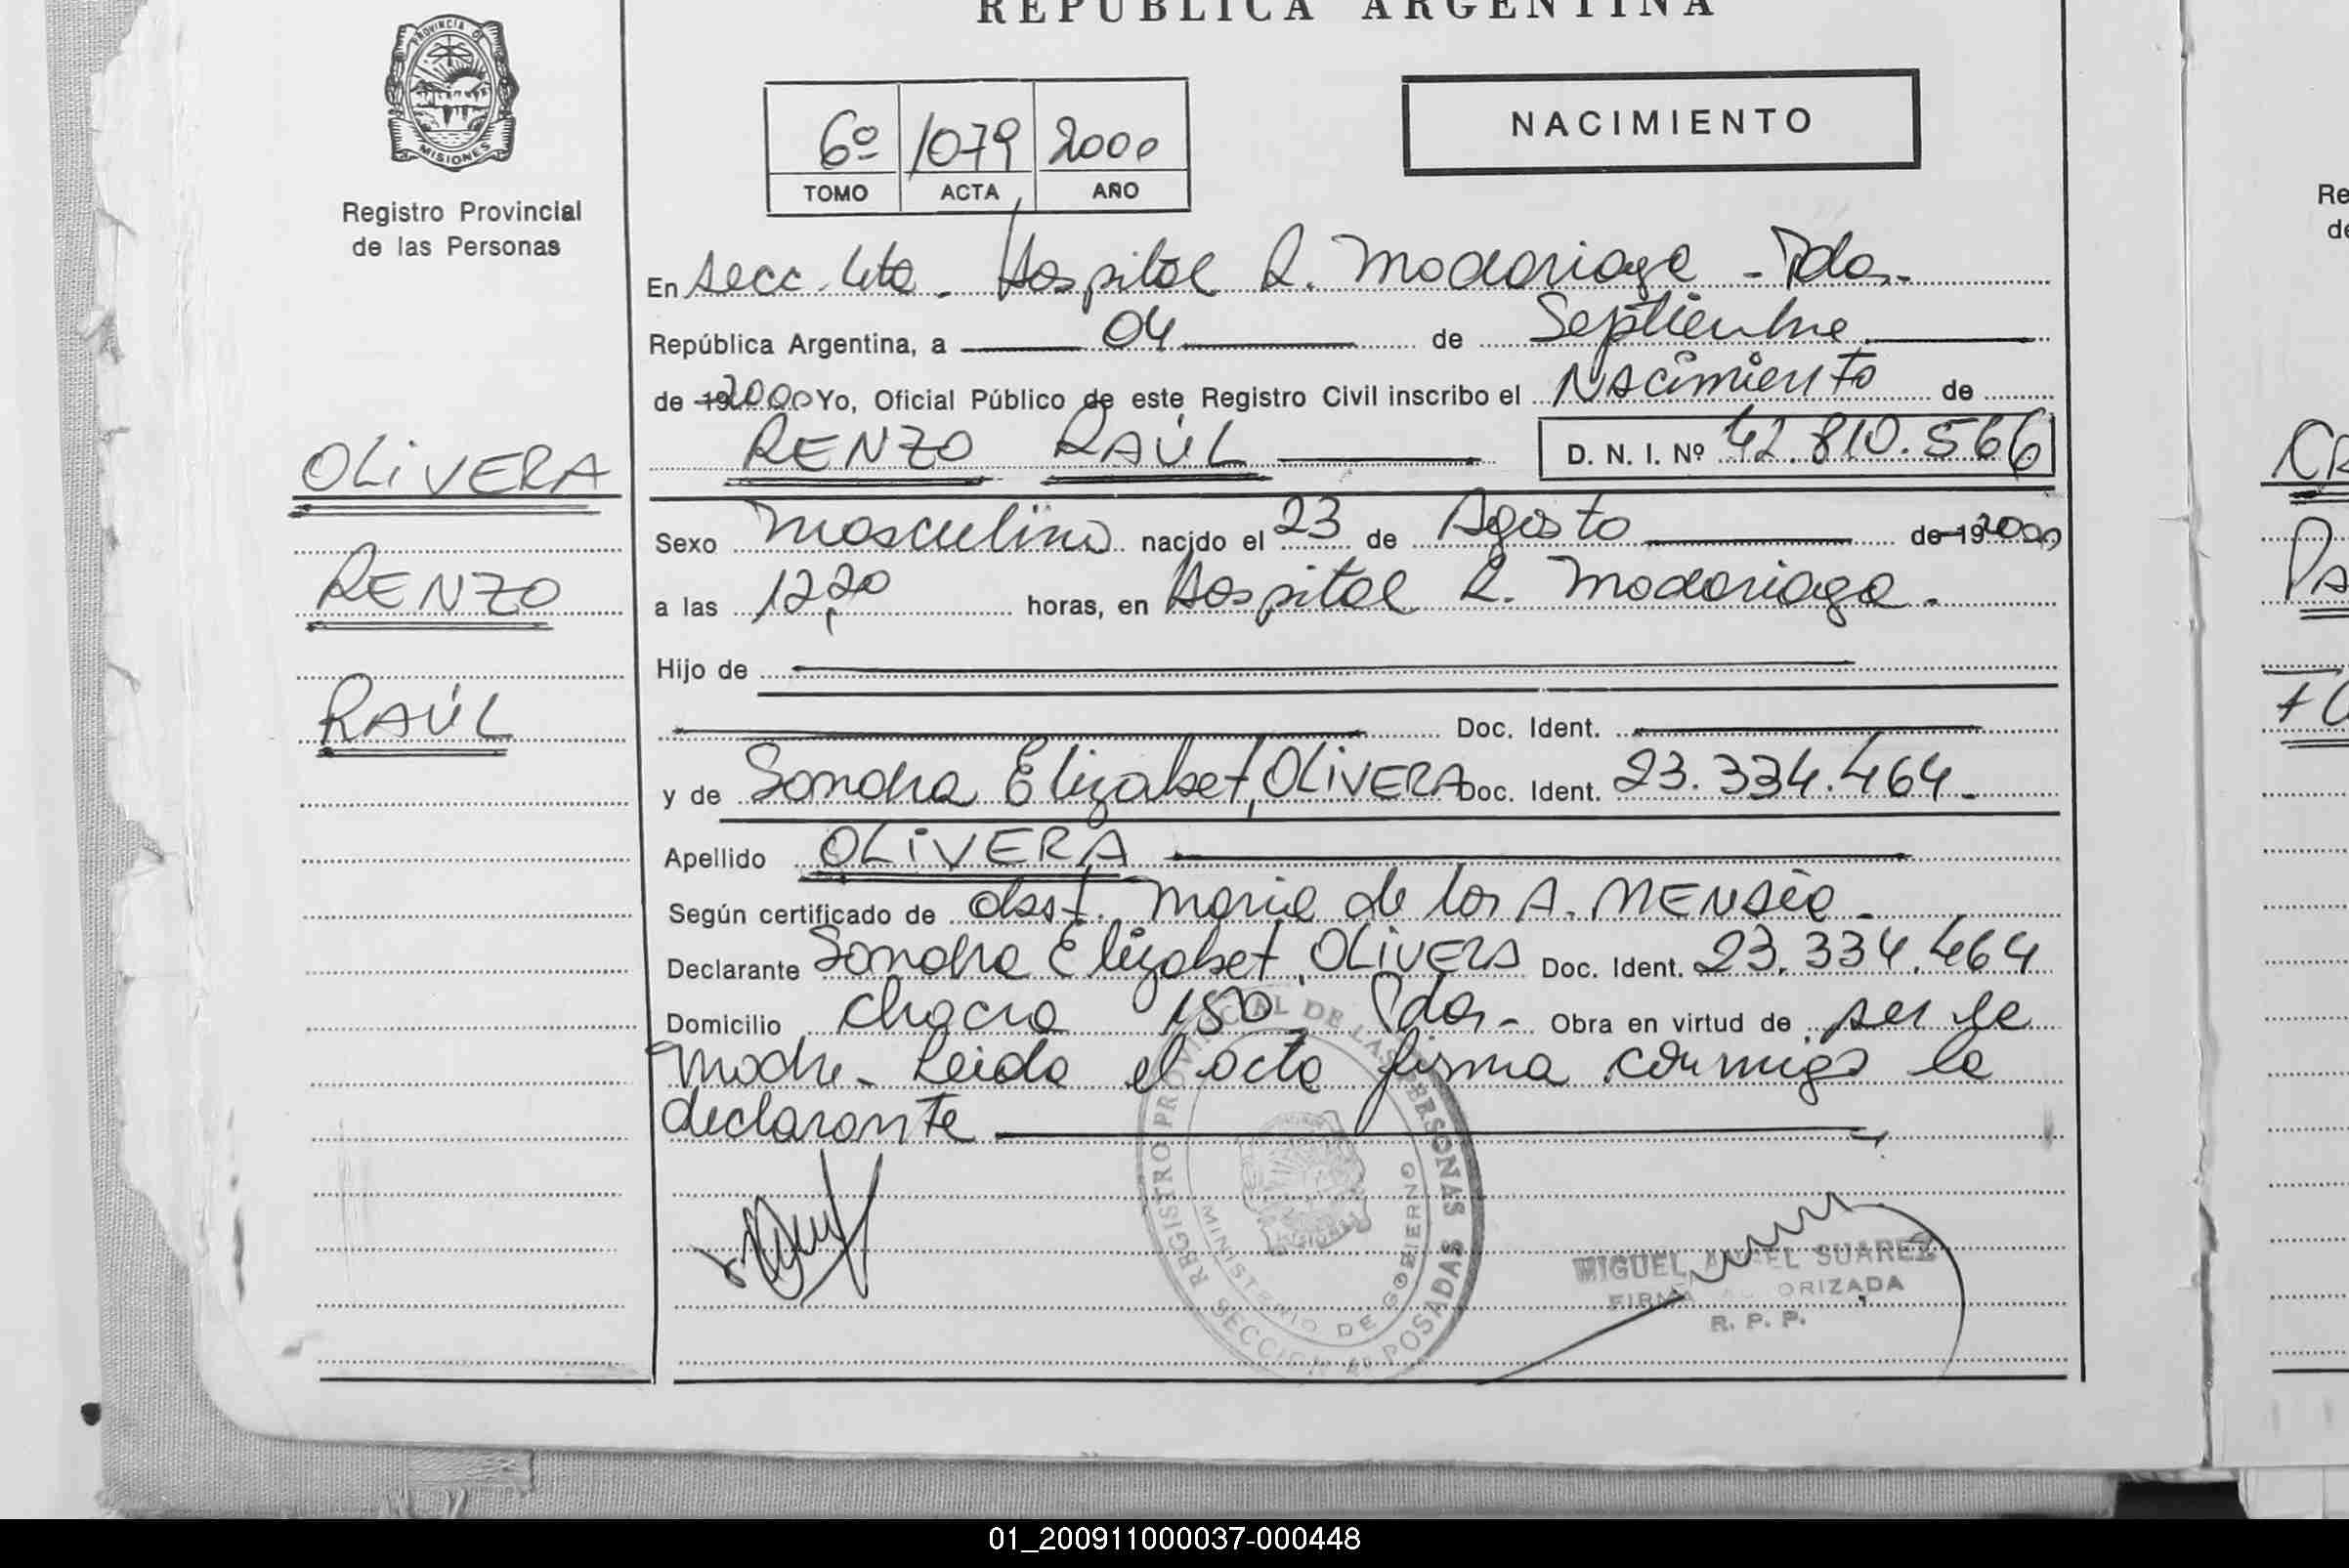 REPUBLICA ARGENTINA
PROVINCIA DE
MISIONES
Registro Provincial
de las Personas
6º 1079 2000
TOMO ACTA AÑO
NACIMIENTO
En Secc. 4ta. Hospital R. Madariaga - Pdas.-
República Argentina, a 04 de Septiembre
de 19 2000 Yo, Oficial Público de este Registro Civil inscribo el Nacimiento de
RENZO RAÚL D. N. I. Nº 42.810.566
OLiVERA
RENZO
RAÚL
Sexo Masculino nacido el 23 de Agosto de 19 2000
a las 12,20 horas, en Hospital R. Madariaga.
Hijo de
Doc. Ident.
y de Sandra Elizabet OLiVERA Doc. Ident. 23.334.464.
Apellido OLiVERA
Según certificado de obst. Maria de los A.
Declarante Sandra Elizabet OLiVERA Doc. Ident. 23.334.464
Domicilio chacra 150. Pdas- Obra en virtud de ser la
madre. Leida el acta firma conmigo la
declarante
REGISTRO PROVINCIAL DE LAS PERSONAS
MINISTERIO DE GOBIERNO
SECCION 4º POSADAS
MISIONES
MIGUEL ANGEL SUAREZ
FIRMA AUTORIZADA
R. P. P.
Re
de
01_200911000037-000448